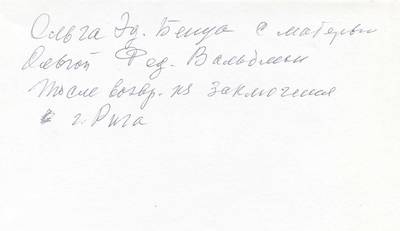 Ольга Эд. Бенуа с матерью
Ольгой Фед. Вальдман
После возвр. из заключения
г. Рига